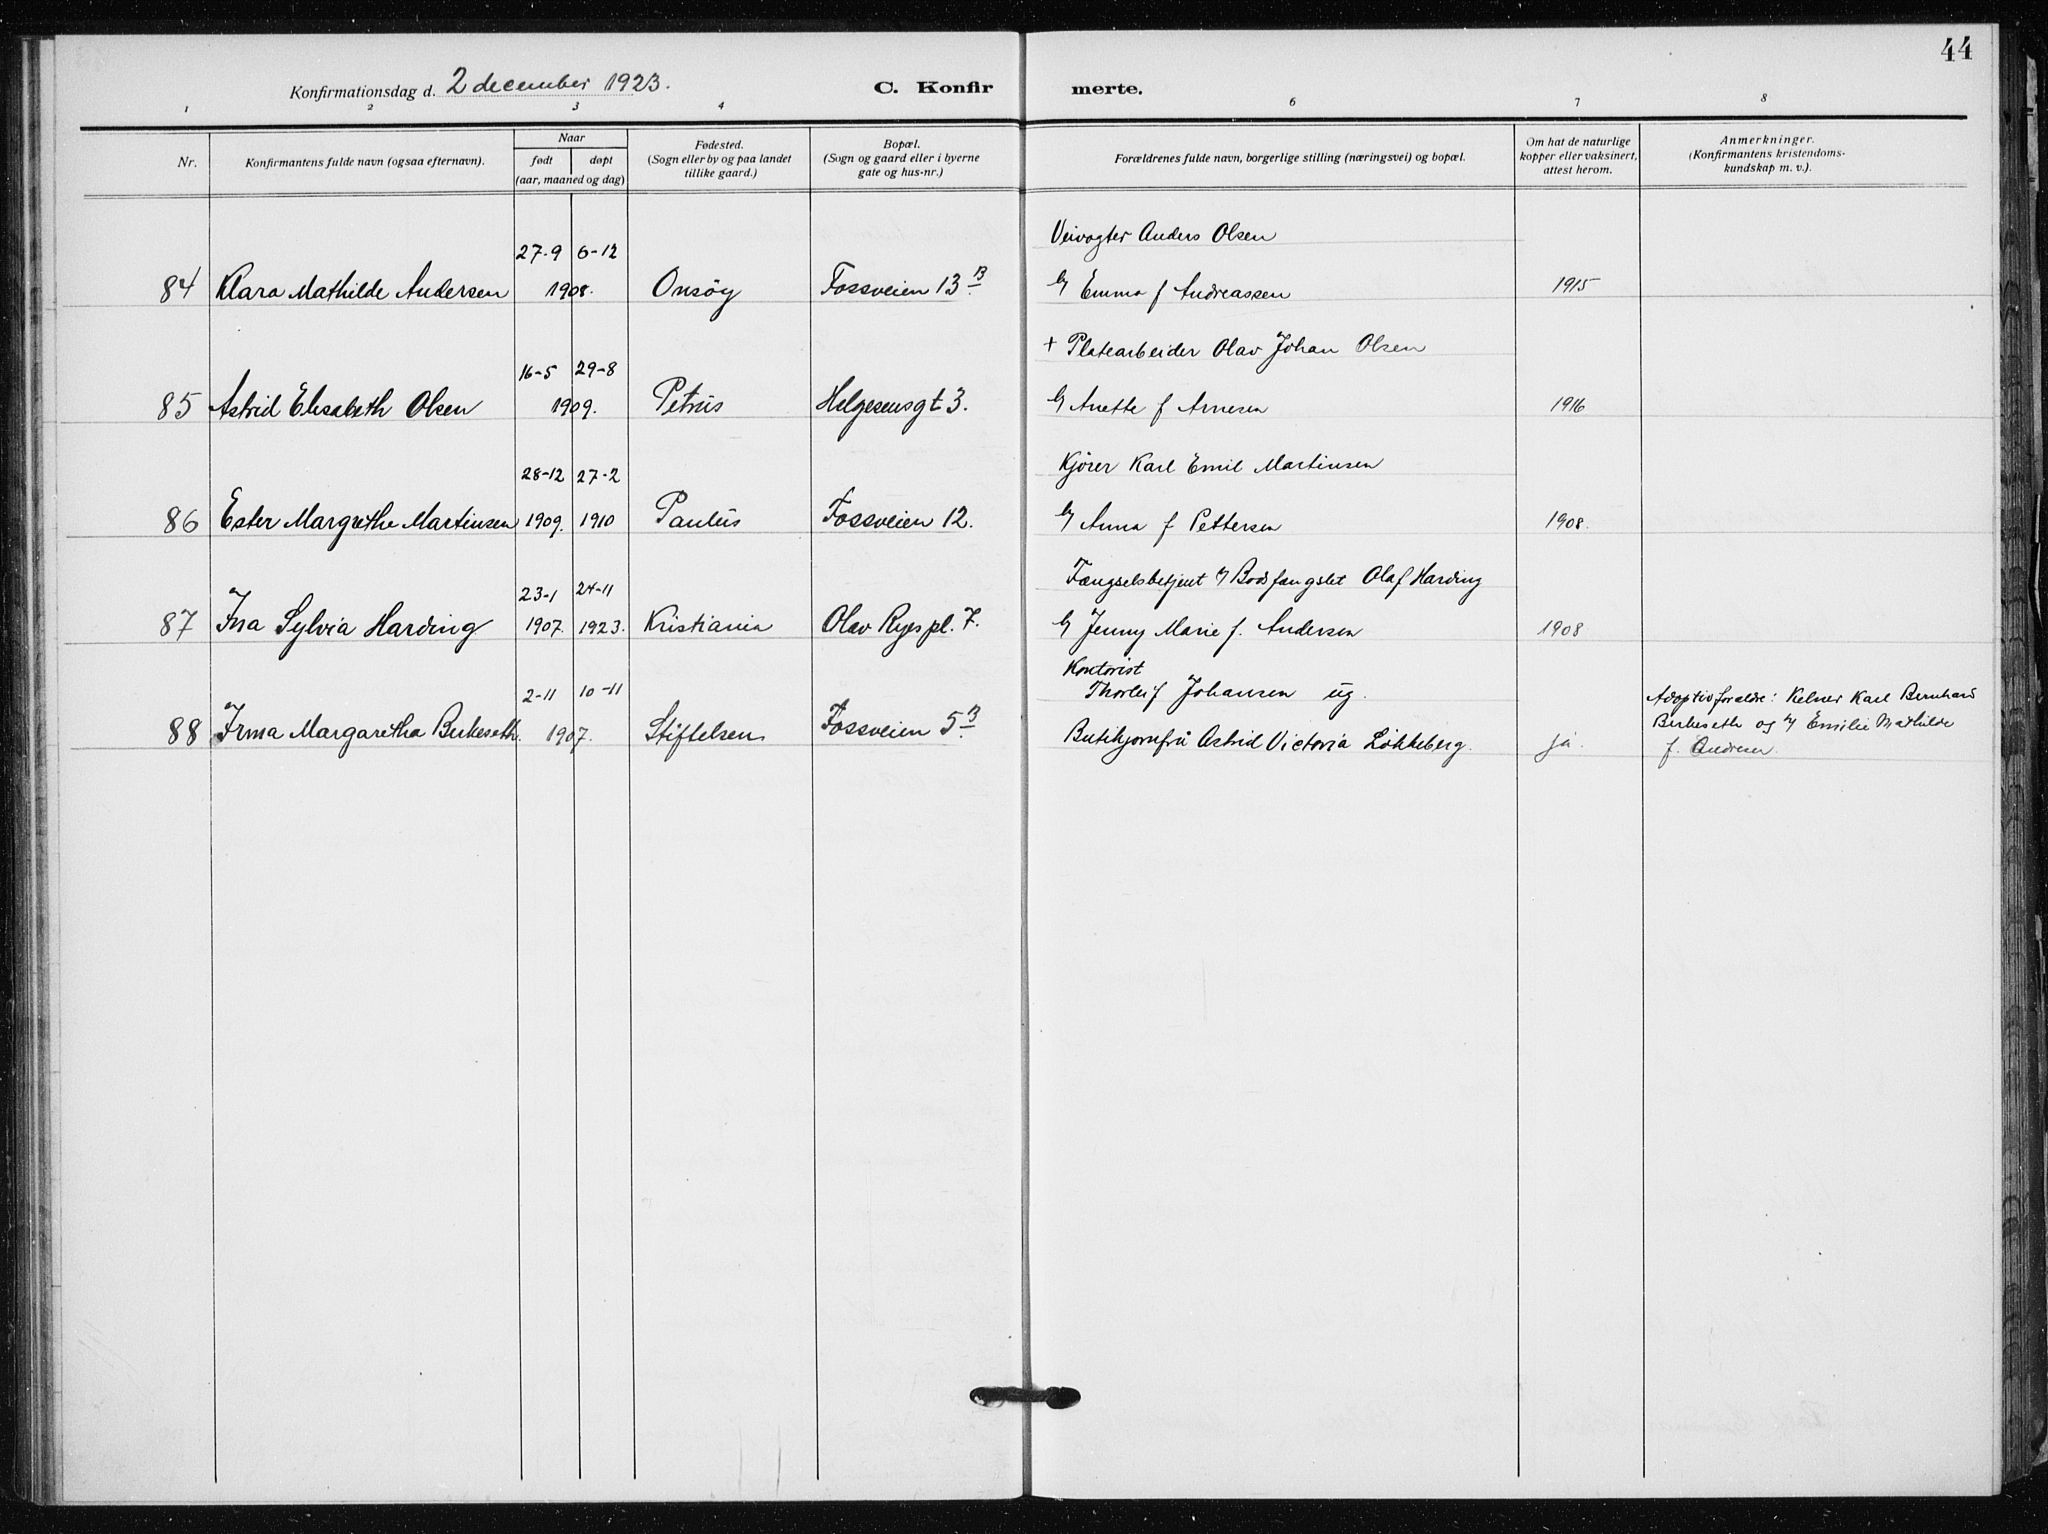 44
Konfirmationsdag d. 2 december 1923. C. Konfir merte.
1 2 3 4 6 7 8
Nr. Konfirmantens fulde navn (ogsaa efternavn). Naar født døpt (aar, maaned og dag) Fødested. (Sogn eller by og paa landet tillike gaard.) Bopæl. (Sogn og gaard eller i byerne gate og hus-nr.) Forældrenes fulde navn, borgerlige stilling (næringsvei) og bopæl. Om hat de naturlige kopper eller vaksinert, attest herom. Anmerkninger. (Konfirmantens kristendoms-kundskap m. v.).
27-9 6-12 Veivogter Anders Olsen
84 Klara Mathilde Andersen 1908. Onsöy Fossveien 13 B. Emma f Andreassen 1915
16-5 29-8 + Platearbeider Olav Johan Olsen
85 Astrid Elisabeth Olsen 1909. Petrus Helgesensgt 3. Anette f Arnesen 1916
28-12 27-2 Kjörer Karl Emil Martinsen
86 Ester Margrethe Martinsen 1909. 1910 Paulus Fossveien 12. Anna f Pettersen 1908.
23-1 24-11 Fængselsbetjent v/ Bodsfængslet Olaf Harding
87 Ina Sylvia Harding 1907. 1923. Kristiania Olav Ryes pl. 7. Jenny Marie f. Andersen 1908
Kontorist
2-11 10-11 Thorleif Johansen ug. Adoptivforældre: Kelner Karl Bernhard
88 Irma Margaretha Birkeseth 1907. Stiftelsen Fossveien 5 B. Butikjomfru Astrid Victoria Lökkeberg. ja. Birkeseth og Emilie Mathilde
f. Andresen.